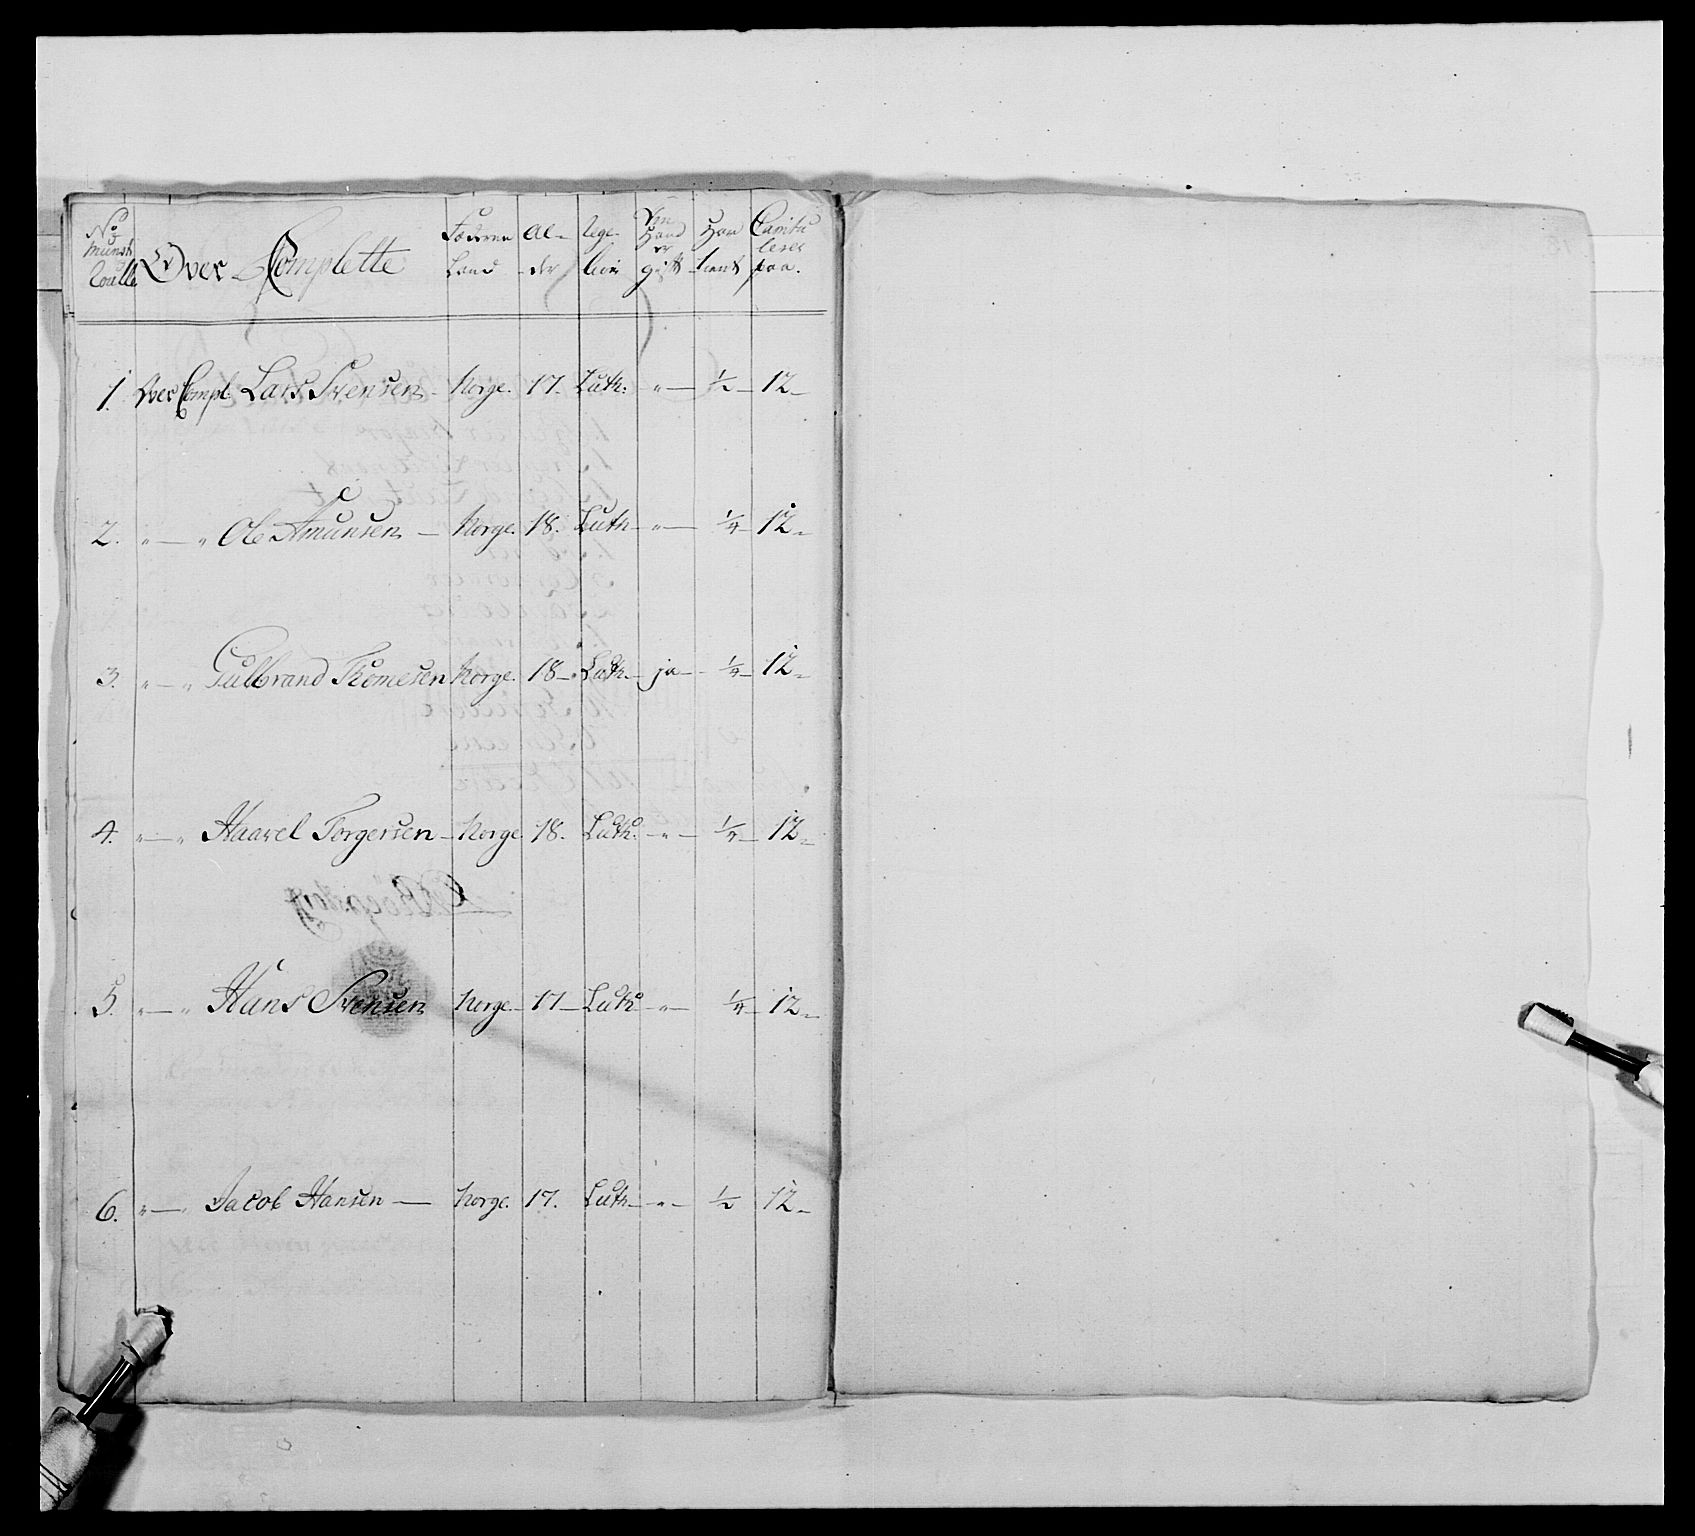 No Munst Roulle | Over Complette | Födsens Land | Al-der | Rege-lion | Om Hand er gift | Har tient | Capitu leret paa.
1. Over Compl. Lars Svensen - Norge. 17. Luth. " — ½ — 12 —
2. " — " Ole Amunsen — Norge. 18. Luth — " — ¼ — 12 —
3. " — " Gulbrand Thomesen Norge. 18 — Luth. — ja — ¼ — 12 —
4. " — " Haavel Torgersen — Norge 18. Luth. — " — ¼ — 12 —
5. " — " Hans Svensen Norge. — 17 — Luth — " — ¼ — 12 —
6. " — " Jacob Hansen — Norge. 17. Luth — " — ½ 12 —